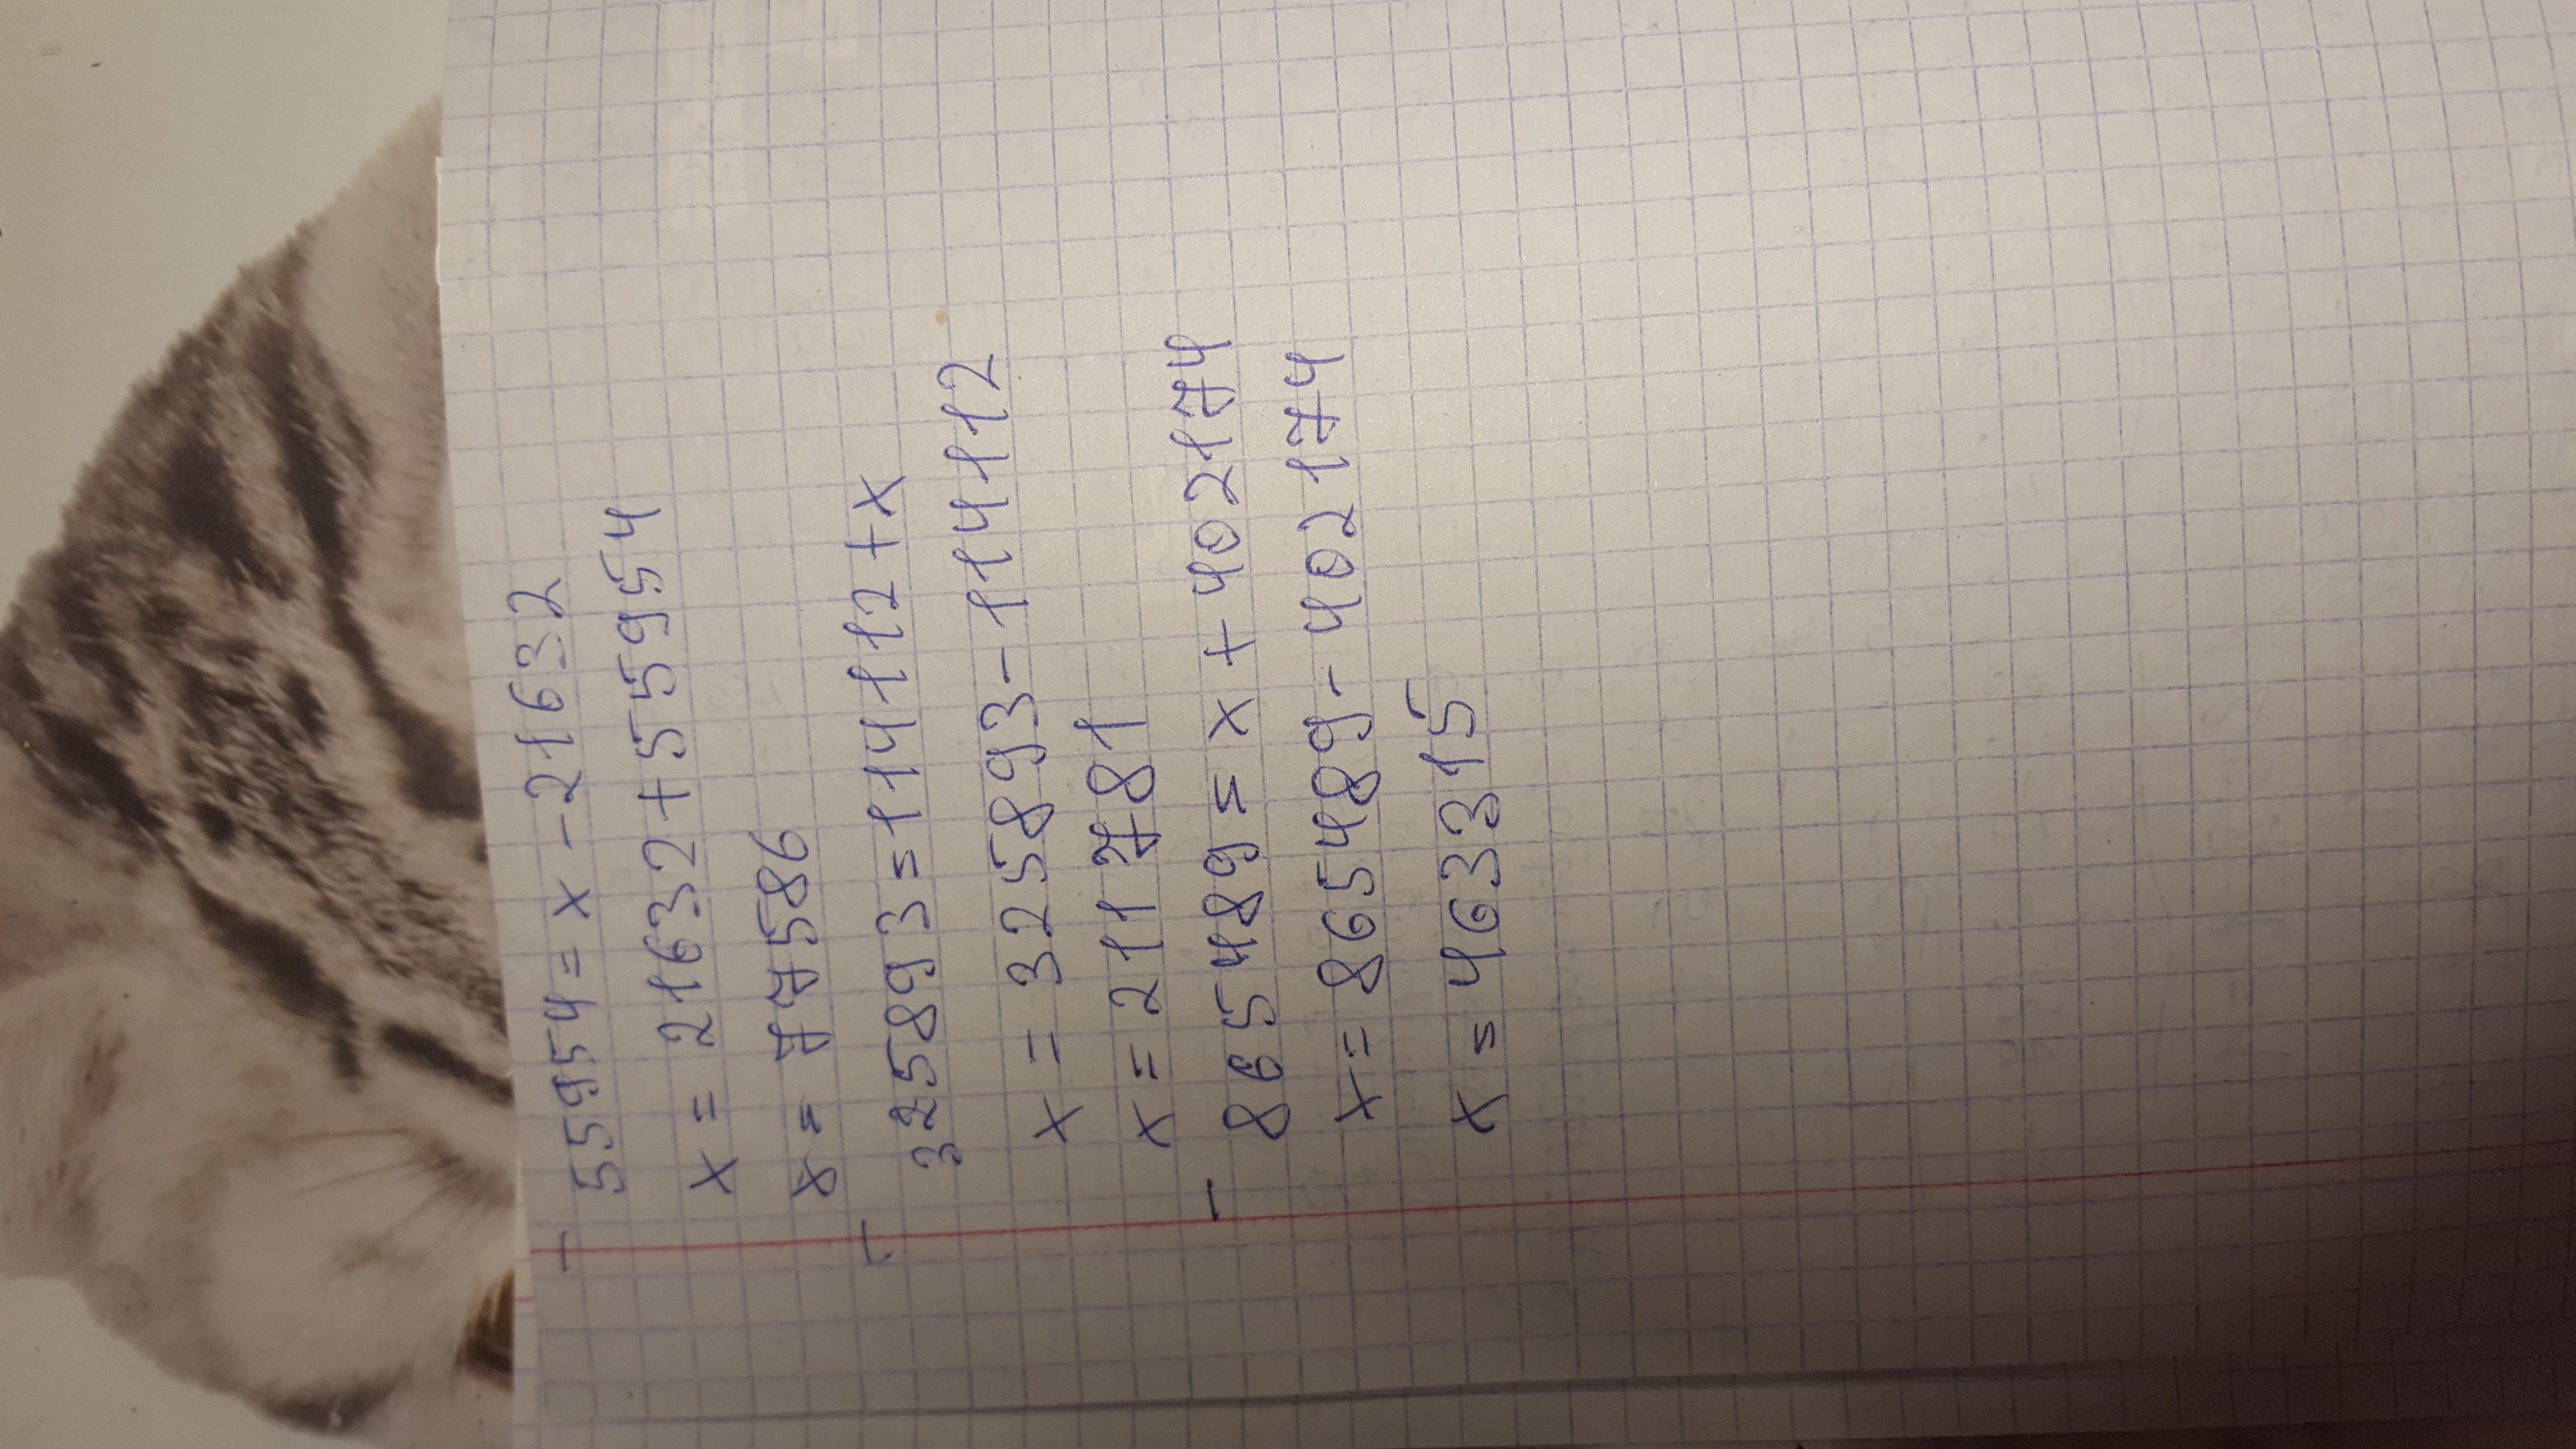 - 55954 = x - 21632
x = 21632 + 55954
x = 77586
- 325893 = 114112 + x
x = 325893 - 114112
x = 211781
- 865489 = x + 402174
x = 865489 - 402174
x = 463315